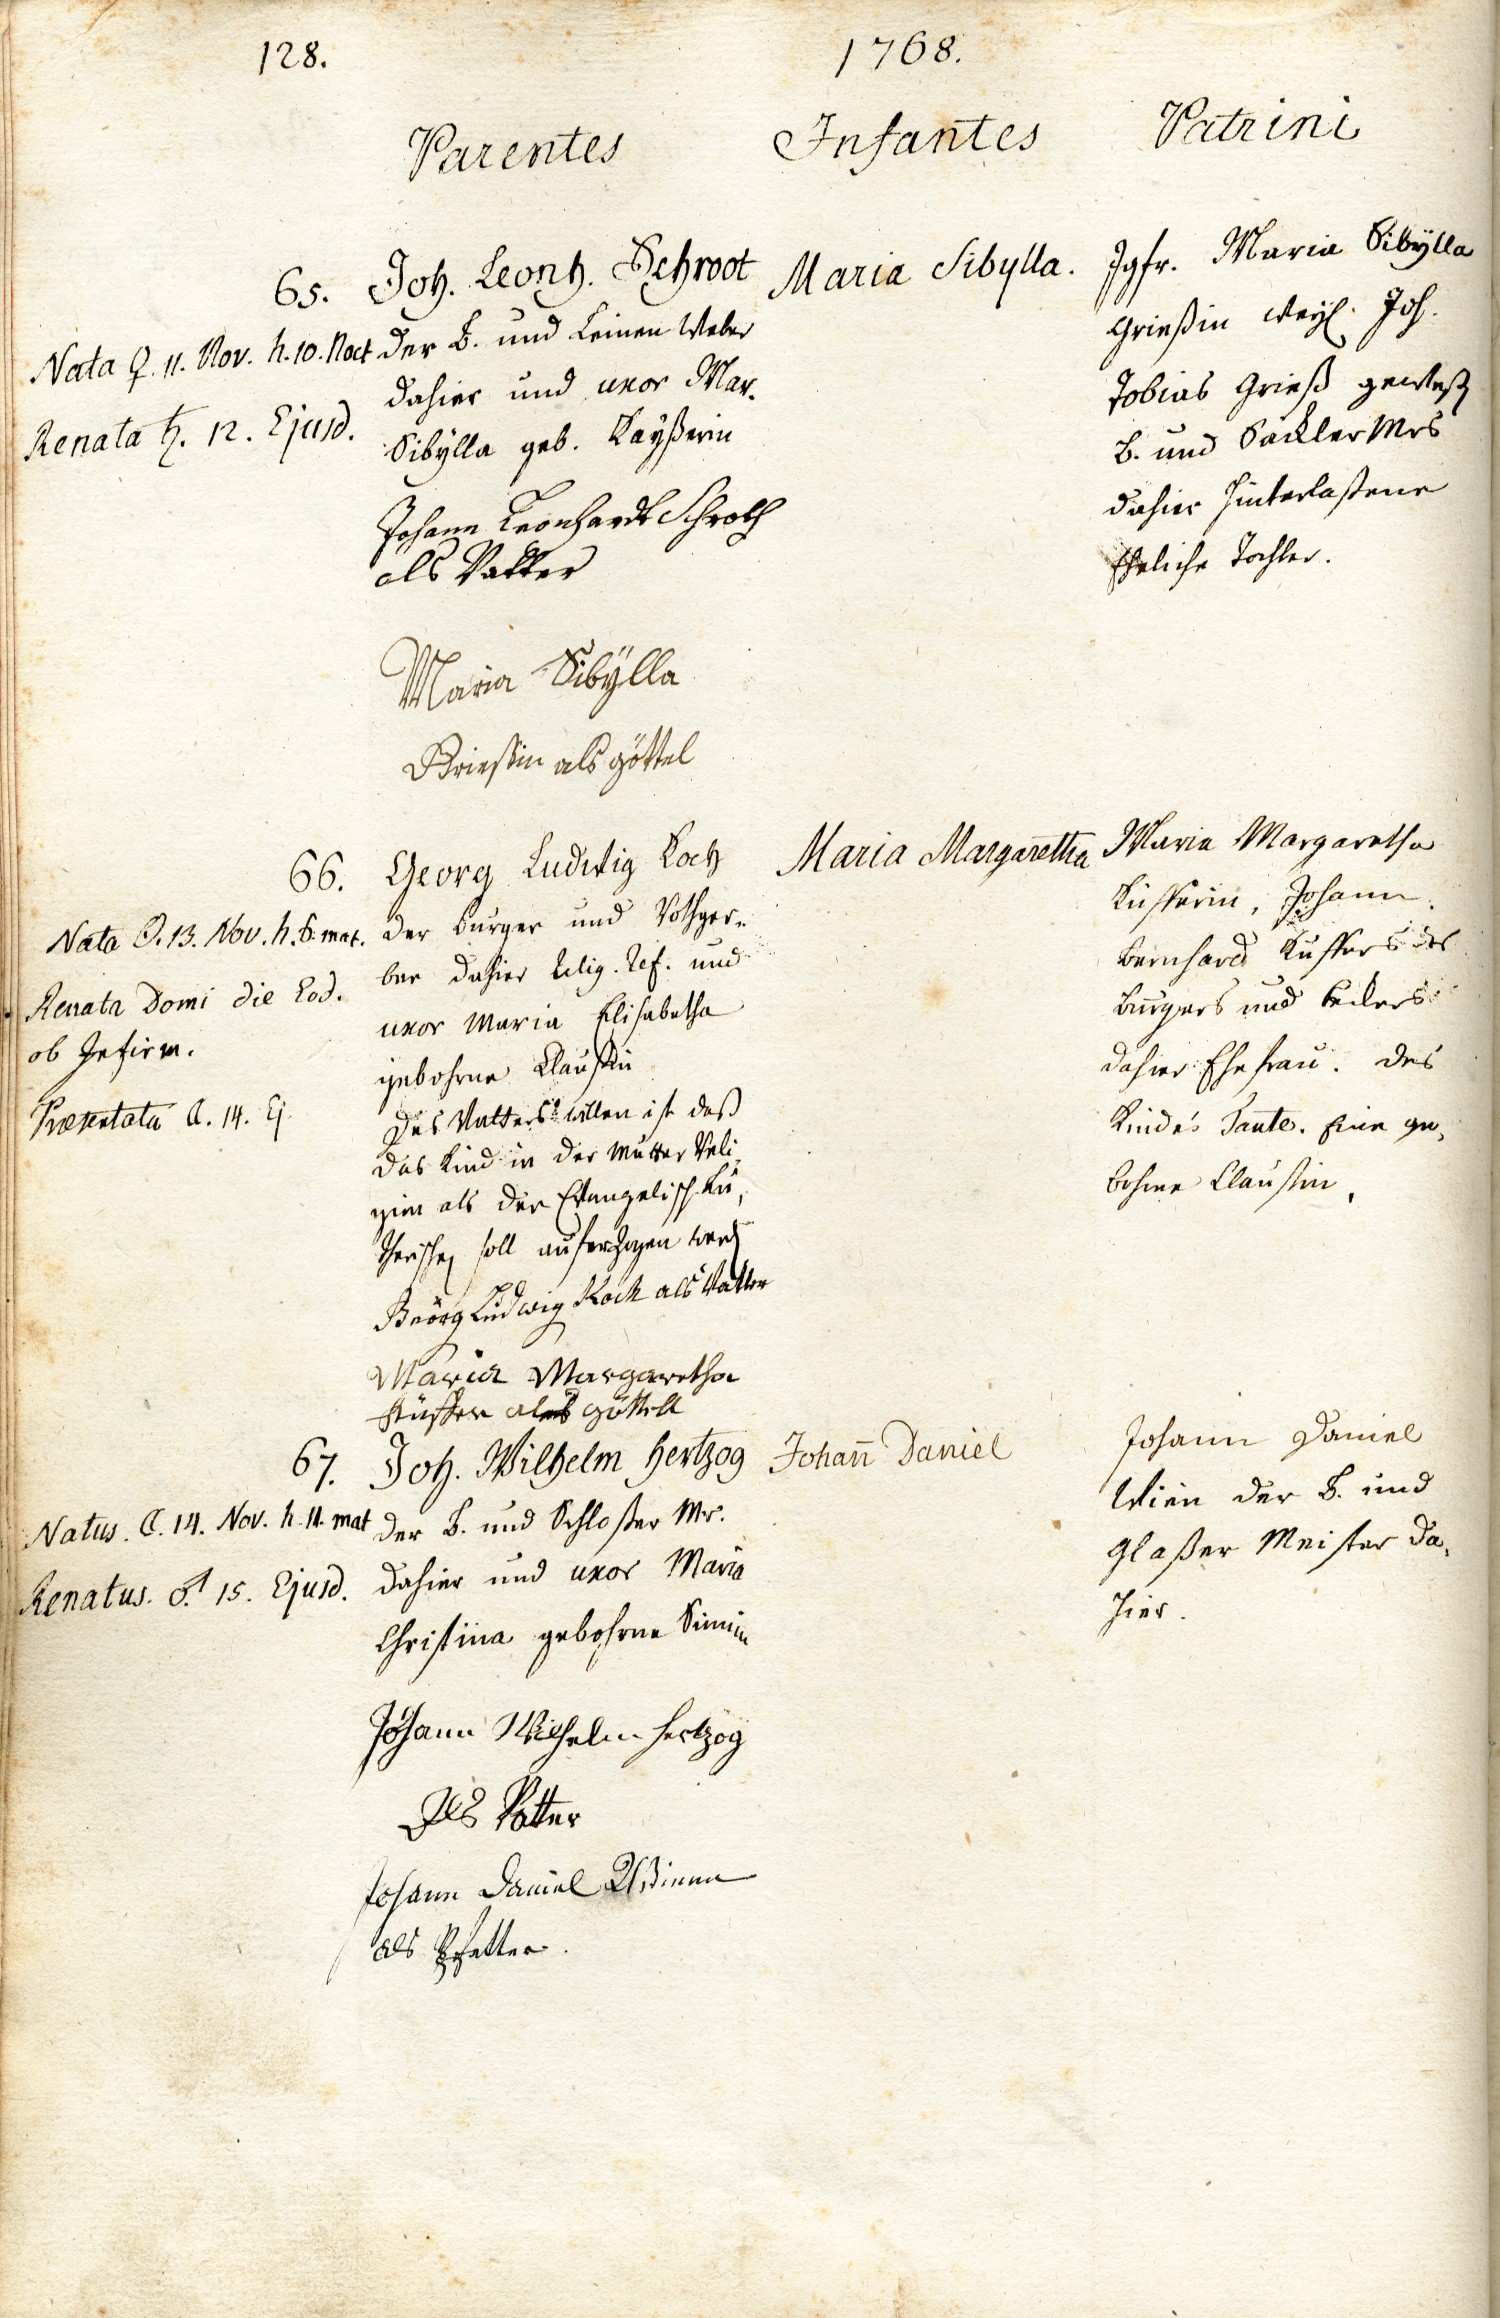 128.
1768.
Parentes
Infantes
Patrini
65.
Nata ♀. 11. Nov. h. 10. Noct
Renata ♄. 12. Ejusd.
Joh. Leonh. Schroot
der B. und Leinen Weber
dahier und uxor Mar.
Sibÿlla geb. Kaÿßerin
Johann Leonhardt Schroth
als Vatter
Maria Sibÿlla
Grießin als göttel
Maria Sibylla.
Jgfr. Maria Sibÿlla
Grießin weyl. Joh.
Tobias Grieß geweß
B. und Sackler Mrs
dahier hinterlaßene
Eheliche Tochter.
66.
Nata ☉. 13. Nov. h. 6. mat.
Renata Domi die Eod.
ob Infirm.
Præsentata ☾. 14. Ej
Georg Ludwig Koch
der burger und Rothger-
ber dahier Relig. Ref. und
uxor Maria Elisabetha
gebohrne Claußin
Des Vatters willen ist daß
das Kind in der Mutter Reli-
gion als der Evangelisch Lu-
therischen soll auferzogen werd
Geörg Ludwig Koch als Vatter
Maria Margaretha
als göttell
Maria Margaretha
Maria Margaretha
Johann
bernhard des
burgers und
dahier Ehefrau. des
Kinde's Tante. Eine ge-
bohrne Claußin.
67.
Natus. ☾. 14. Nov. h. 11. mat
Renatus. ♂. 15. Ejusd.
Joh. Wilhelm Hertzog
der B. und Schloßer Mr.
dahier und uxor Maria
Christina gebohrne
Johann Wilhelm Hertzog
Als Vatter
Johann Daniel Wienn
als Pfetter.
Johan̄ Daniel
Johann Daniel
Wien der B. und
Glaßer Meister da-
hier.